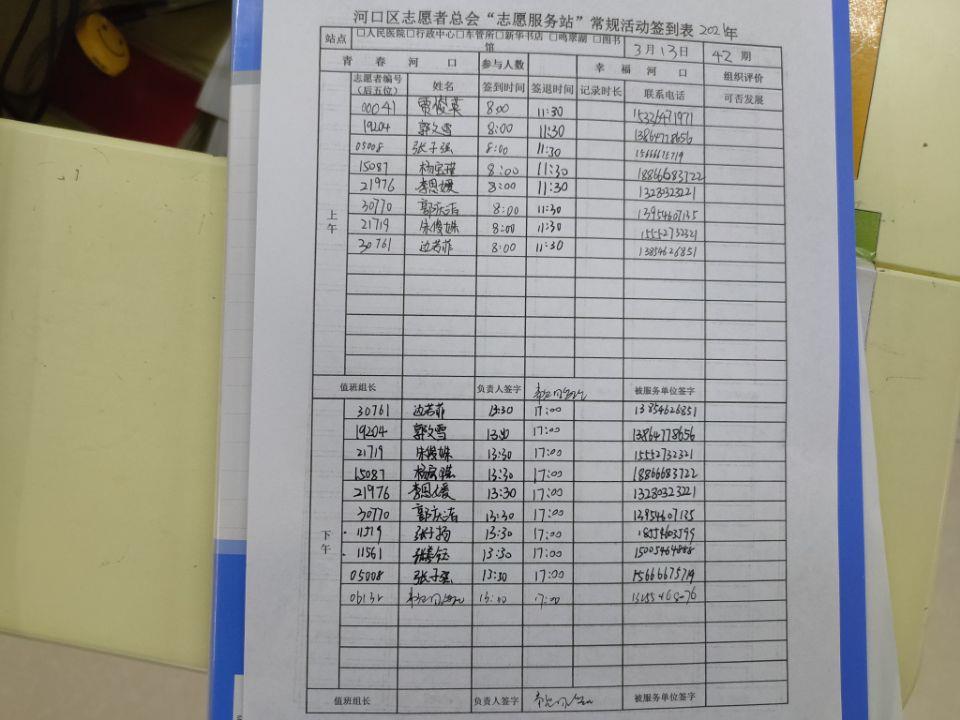 河口区志愿者总会“志愿服务站”常规活动签到表 2021年
站点 □人民医院□行政中心□车管所□新华书店 □鸣翠湖 □图书馆 3月13日 42期
青春河口 参与人数 幸福河口 组织评价
志愿者编号（后五位） 姓名 签到时间 签退时间 记录时长 联系电话 可否发展
上午
00041 贾俊英 8:00 11:30 15326471971
19204 郭文雪 8:00 11:30 13864778656
05008 张子强 8:00 11:30 15666675719
15087 8:00 11:30 18866683722
21976 李恩媛 8:00 11:30 13280323221
30770 郭庆洁 8:00 11:30 13954607135
21719 宋俊姝 8:00 11:30 15552732321
30761 边若菲 8:00 11:30 13854626851
值班组长 负责人签字 被服务单位签字
下午
30761 边若菲 13:30 17:00 13854626851
19204 郭文雪 13:30 17:00 13864778656
21719 宋俊姝 13:30 17:00 15552732321
15087 13:30 17:00 18866683722
21976 李恩媛 13:30 17:00 13280323221
30770 郭庆洁 13:30 17:00 13954607135
11519 张子扬 13:30 17:00
11561 13:30 17:00
05008 张子强 13:30 17:00 15666675719
17:00
值班组长 负责人签字 被服务单位签字